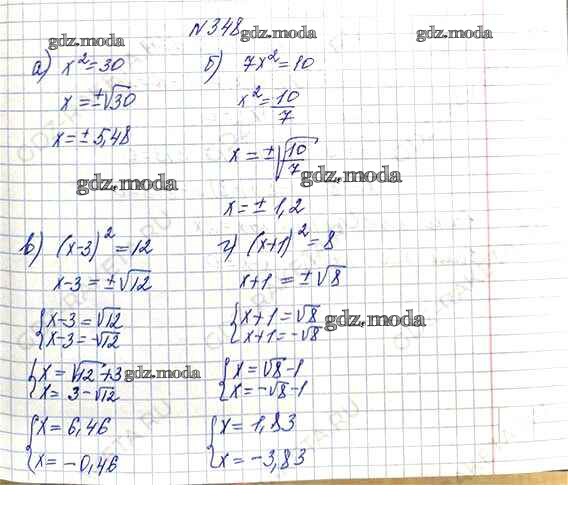 N348
gdz.moda gdz.moda gdz.moda
а) x² = 30
x = ±√30
x = ± 5,48
б) 7x² = 10
x² = 10/7
x = ±√10/7
x = ± 1,2
gdz.moda gdz.moda
в) (x-3)² = 12
x-3 = ±√12
{x-3 = √12
x-3 = -√12
{x = √12 +3
x = 3-√12
{x = 6,46
x = -0,46
г) (x+1)² = 8
x+1 = ±√8
{x+1 = √8
x+1 = -√8
{x = √8-1
x = -√8-1
{x = 1,83
x = -3,83
gdz.moda
gdz.moda